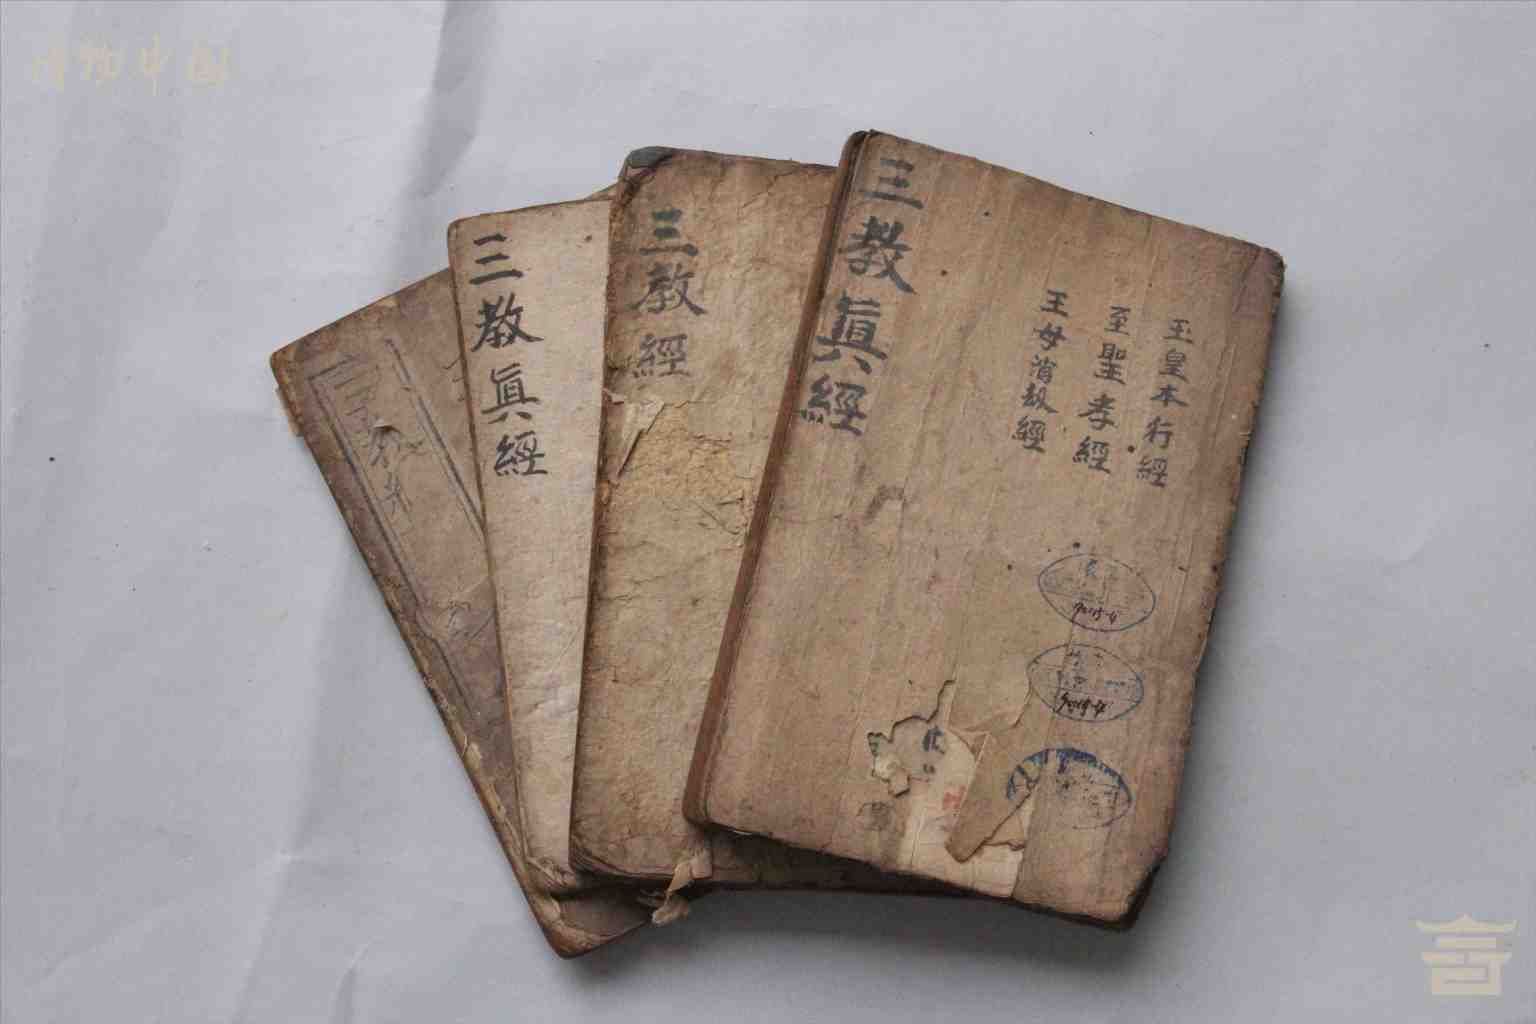 博物中国
三教真經
玉皇本行經
至聖孝經
王母消劫經
三教經
三教真經
三教